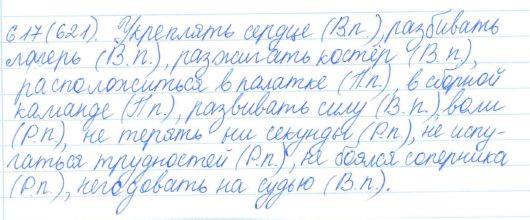 617(621). Укреплять сердце (В.п.), разбивать
лагерь (В.п.), разжигать костёр (В.п),
расположиться в палатке (П.п), в сборной
команде (П.п), развивать силу (В.п.), воли
(Р.п), не терять ни секунды (Р.п), не испу-
гаться трудностей (Р.п), не боялся соперника
(Р.п), негодовать на судью (В.п).